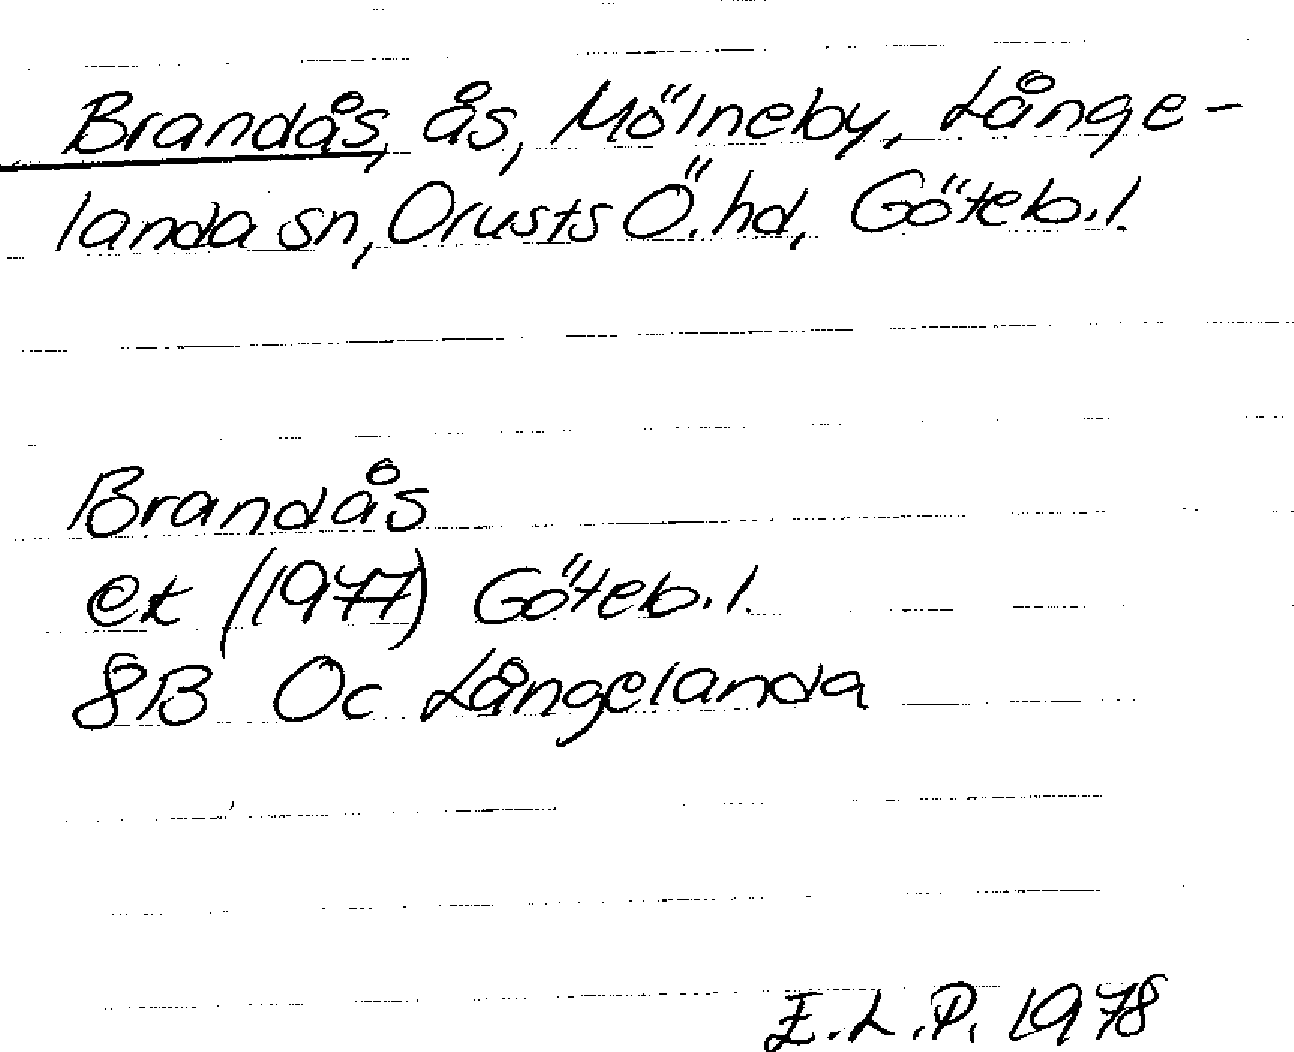 Brandås, ås, Mölneby, Långe-
landa sn, Orusts Ö. hd, Göteb. l.
Brandås
ek (1977) Göteb. l.
8B Oc Långelanda
E. L. P. 1978